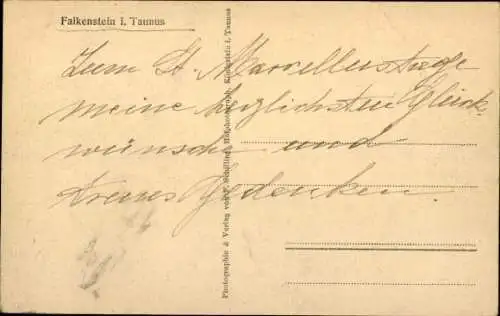 Falkenstein i. Taunus
Zum St. Marcellustage
meine herzlichsten Glück-
wünsche und
treues Gedenken.
Photographie & Verlag von F. Schilling, Hofphotograph, Königstein i. Taunus